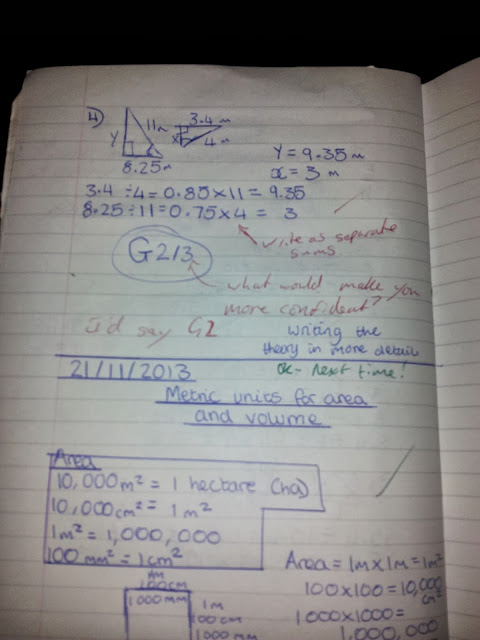 4)
11m
3.4 m
4m
Y
x
8.25m
Y = 9.35 m
x = 3 m
3.4 ÷ 4 = 0.85 × 11 = 9.35
8.25 ÷ 11 = 0.75 × 4 = 3
write as separate
sums
G213
what would make you
more confident?
I'd say G2
writing the
theory in more detail
OK - next time!
21/11/2013
Metric units for area
and volume
Area
10,000m² = 1 hectare (ha)
10,000cm² = 1m²
1m² = 1,000,000
100mm² = 1cm²
1m
100cm
1000mm
1m
100cm
1000mm
Area = 1m × 1m = 1m²
100 × 100 = 10,000
cm²
1000 × 1000 =
1,000,000